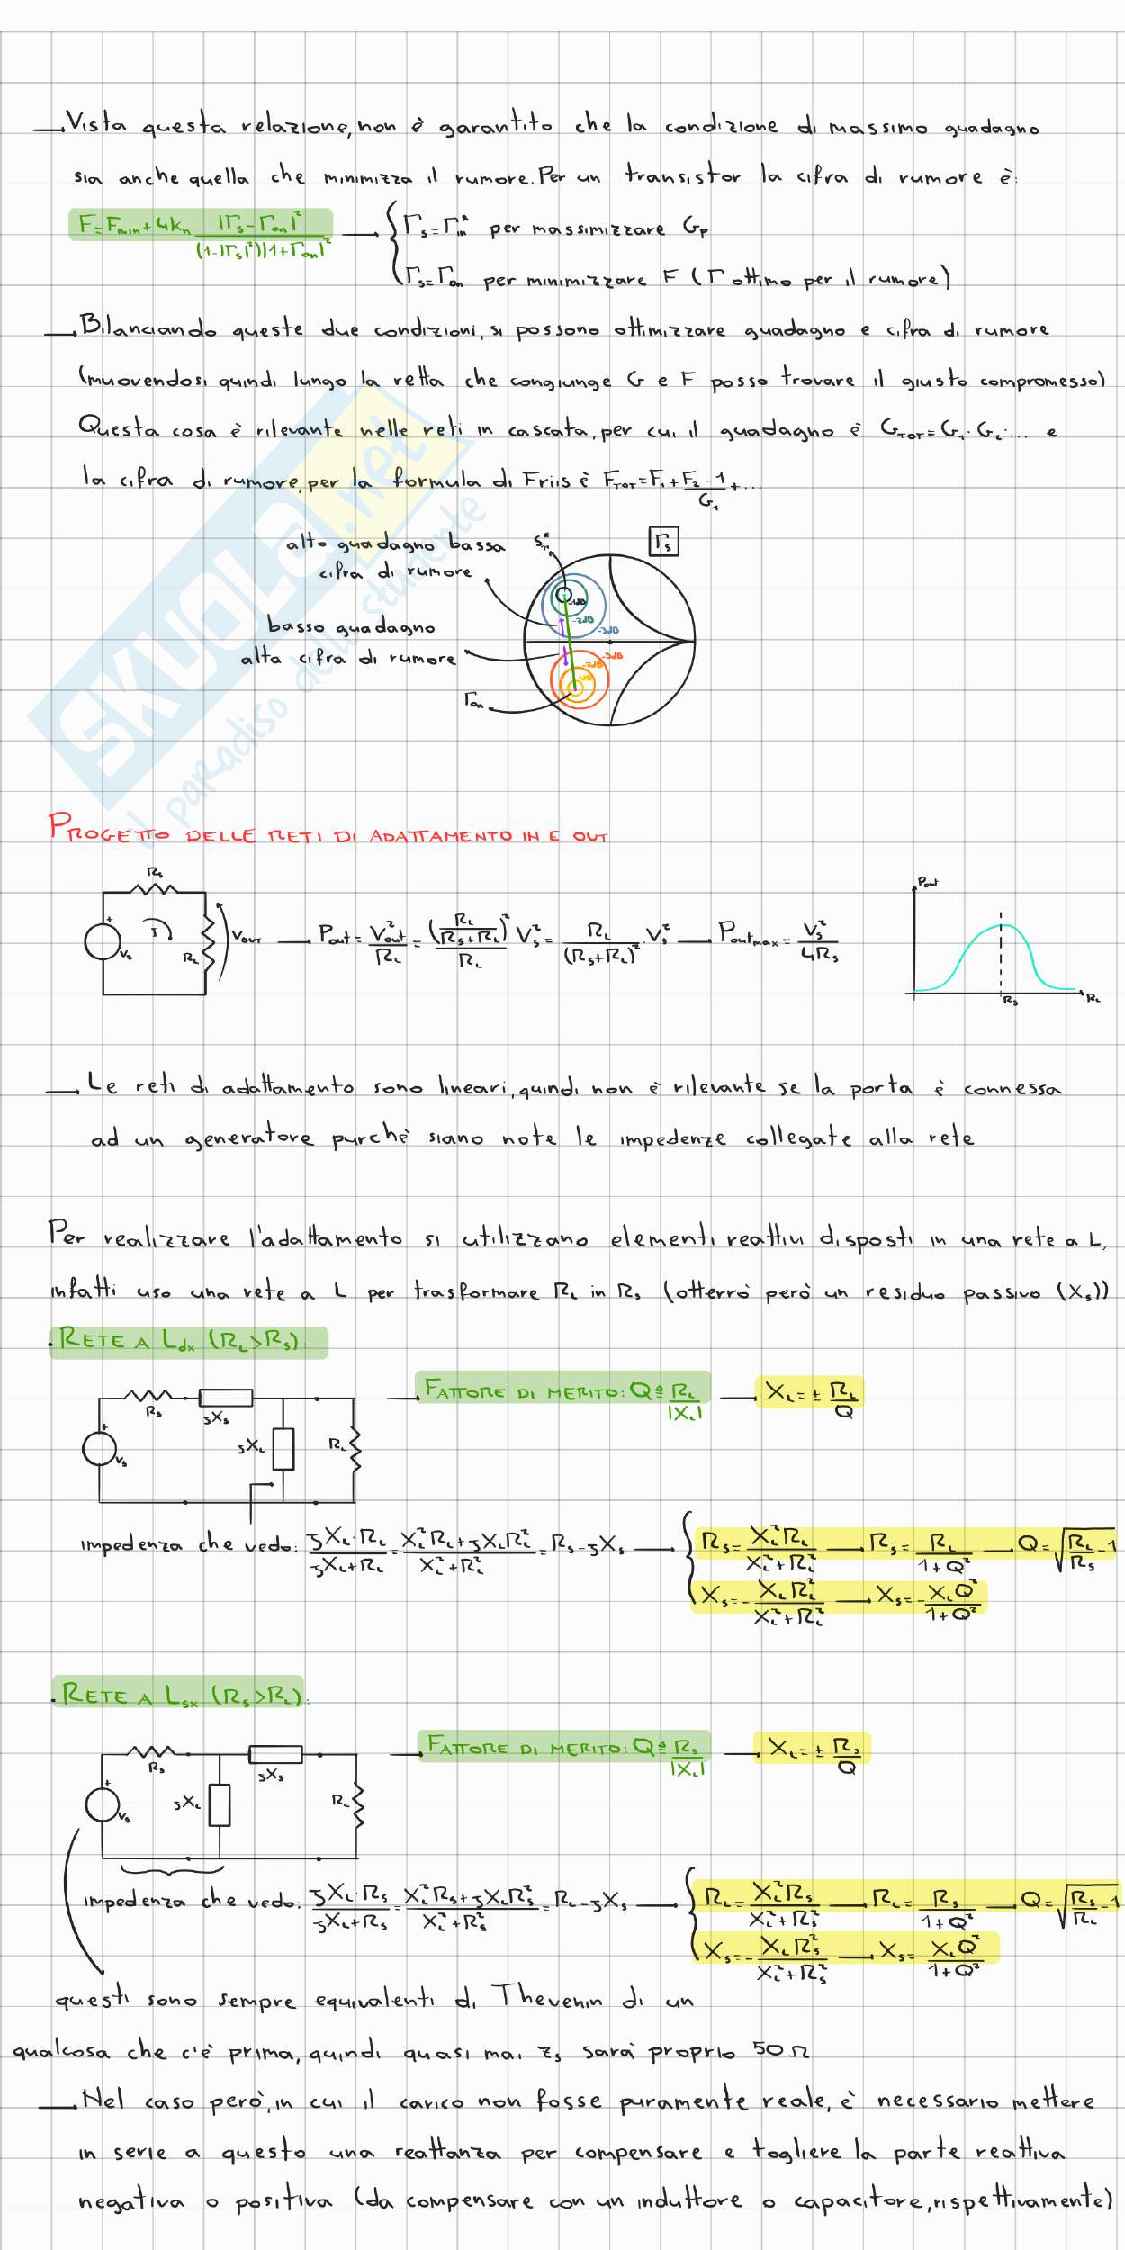 Vista questa relazione, non è garantito che la condizione di massimo guadagno
sia anche quella che minimizza il rumore. Per un transistor la cifra di rumore è:
F = Fmin + 4kn |Γs - Γon|² / (1-|Γs|²)|1+Γon|² → { Γs = Γin* per massimizzare Gp
Γs = Γon per minimizzare F (Γ ottimo per il rumore)
Bilanciando queste due condizioni, si possono ottimizzare guadagno e cifra di rumore
(muovendosi quindi lungo la retta che congiunge G e F posso trovare il giusto compromesso)
Questa cosa è rilevante nelle reti in cascata, per cui il guadagno è GTOT = G1 · G2 · ... e
la cifra di rumore, per la formula di Friis è FTOT = F1 + F2-1/G1 + ...
alto guadagno bassa
cifra di rumore
Γs
-1dB
-2dB
-3dB
basso guadagno
alta cifra di rumore
-3dB
-2dB
Γon
SKUOLA.net
il paradiso dello studente
PROGETTO DELLE RETI DI ADATTAMENTO IN E OUT
Rs
Vs
RL
VOUT → Pout = Vout²/RL = (RL/(Rs+RL))²/RL Vs² = RL/(Rs+RL)² · Vs² → Poutmax = Vs²/4Rs
Pout
Rs
RL
Le reti di adattamento sono lineari, quindi non è rilevante se la porta è connessa
ad un generatore purchè siano note le impedenze collegate alla rete
Per realizzare l'adattamento si utilizzano elementi reattivi disposti in una rete a L,
infatti uso una rete a L per trasformare RL in Rs (otterrò però un residuo passivo (Xs))
· RETE A Ldx (RL>Rs):
Rs
JXs
JXL
RL
Vs
→ FATTORE DI MERITO: Q ≜ RL/|XL| → XL = ± RL/Q
impedenza che vedo: JXL·RL/JXL+RL = XL²RL+JXLRL²/XL²+RL² = Rs-JXs → { Rs = XL²RL/XL²+RL² → Rs = RL/1+Q² → Q = √(RL/Rs - 1)
Xs = - XLRL²/XL²+RL² → Xs = - XLQ²/1+Q²
· RETE A Lsx (Rs>RL):
Rs
JXs
JXL
RL
Vs
→ FATTORE DI MERITO: Q ≜ Rs/|XL| → XL = ± Rs/Q
impedenza che vedo: JXL·Rs/JXL+Rs = XL²Rs+JXLRs²/XL²+Rs² = RL-JXs → { RL = XL²Rs/XL²+Rs² → RL = Rs/1+Q² → Q = √(Rs/RL - 1)
Xs = - XLRs²/XL²+Rs² → Xs = XLQ²/1+Q²
questi sono sempre equivalenti di Thevenin di un
qualcosa che c'è prima, quindi quasi mai Zs sarà proprio 50Ω
Nel caso però, in cui il carico non fosse puramente reale, è necessario mettere
in serie a questo una reattanza per compensare e togliere la parte reattiva
negativa o positiva (da compensare con un induttore o capacitore, rispettivamente)